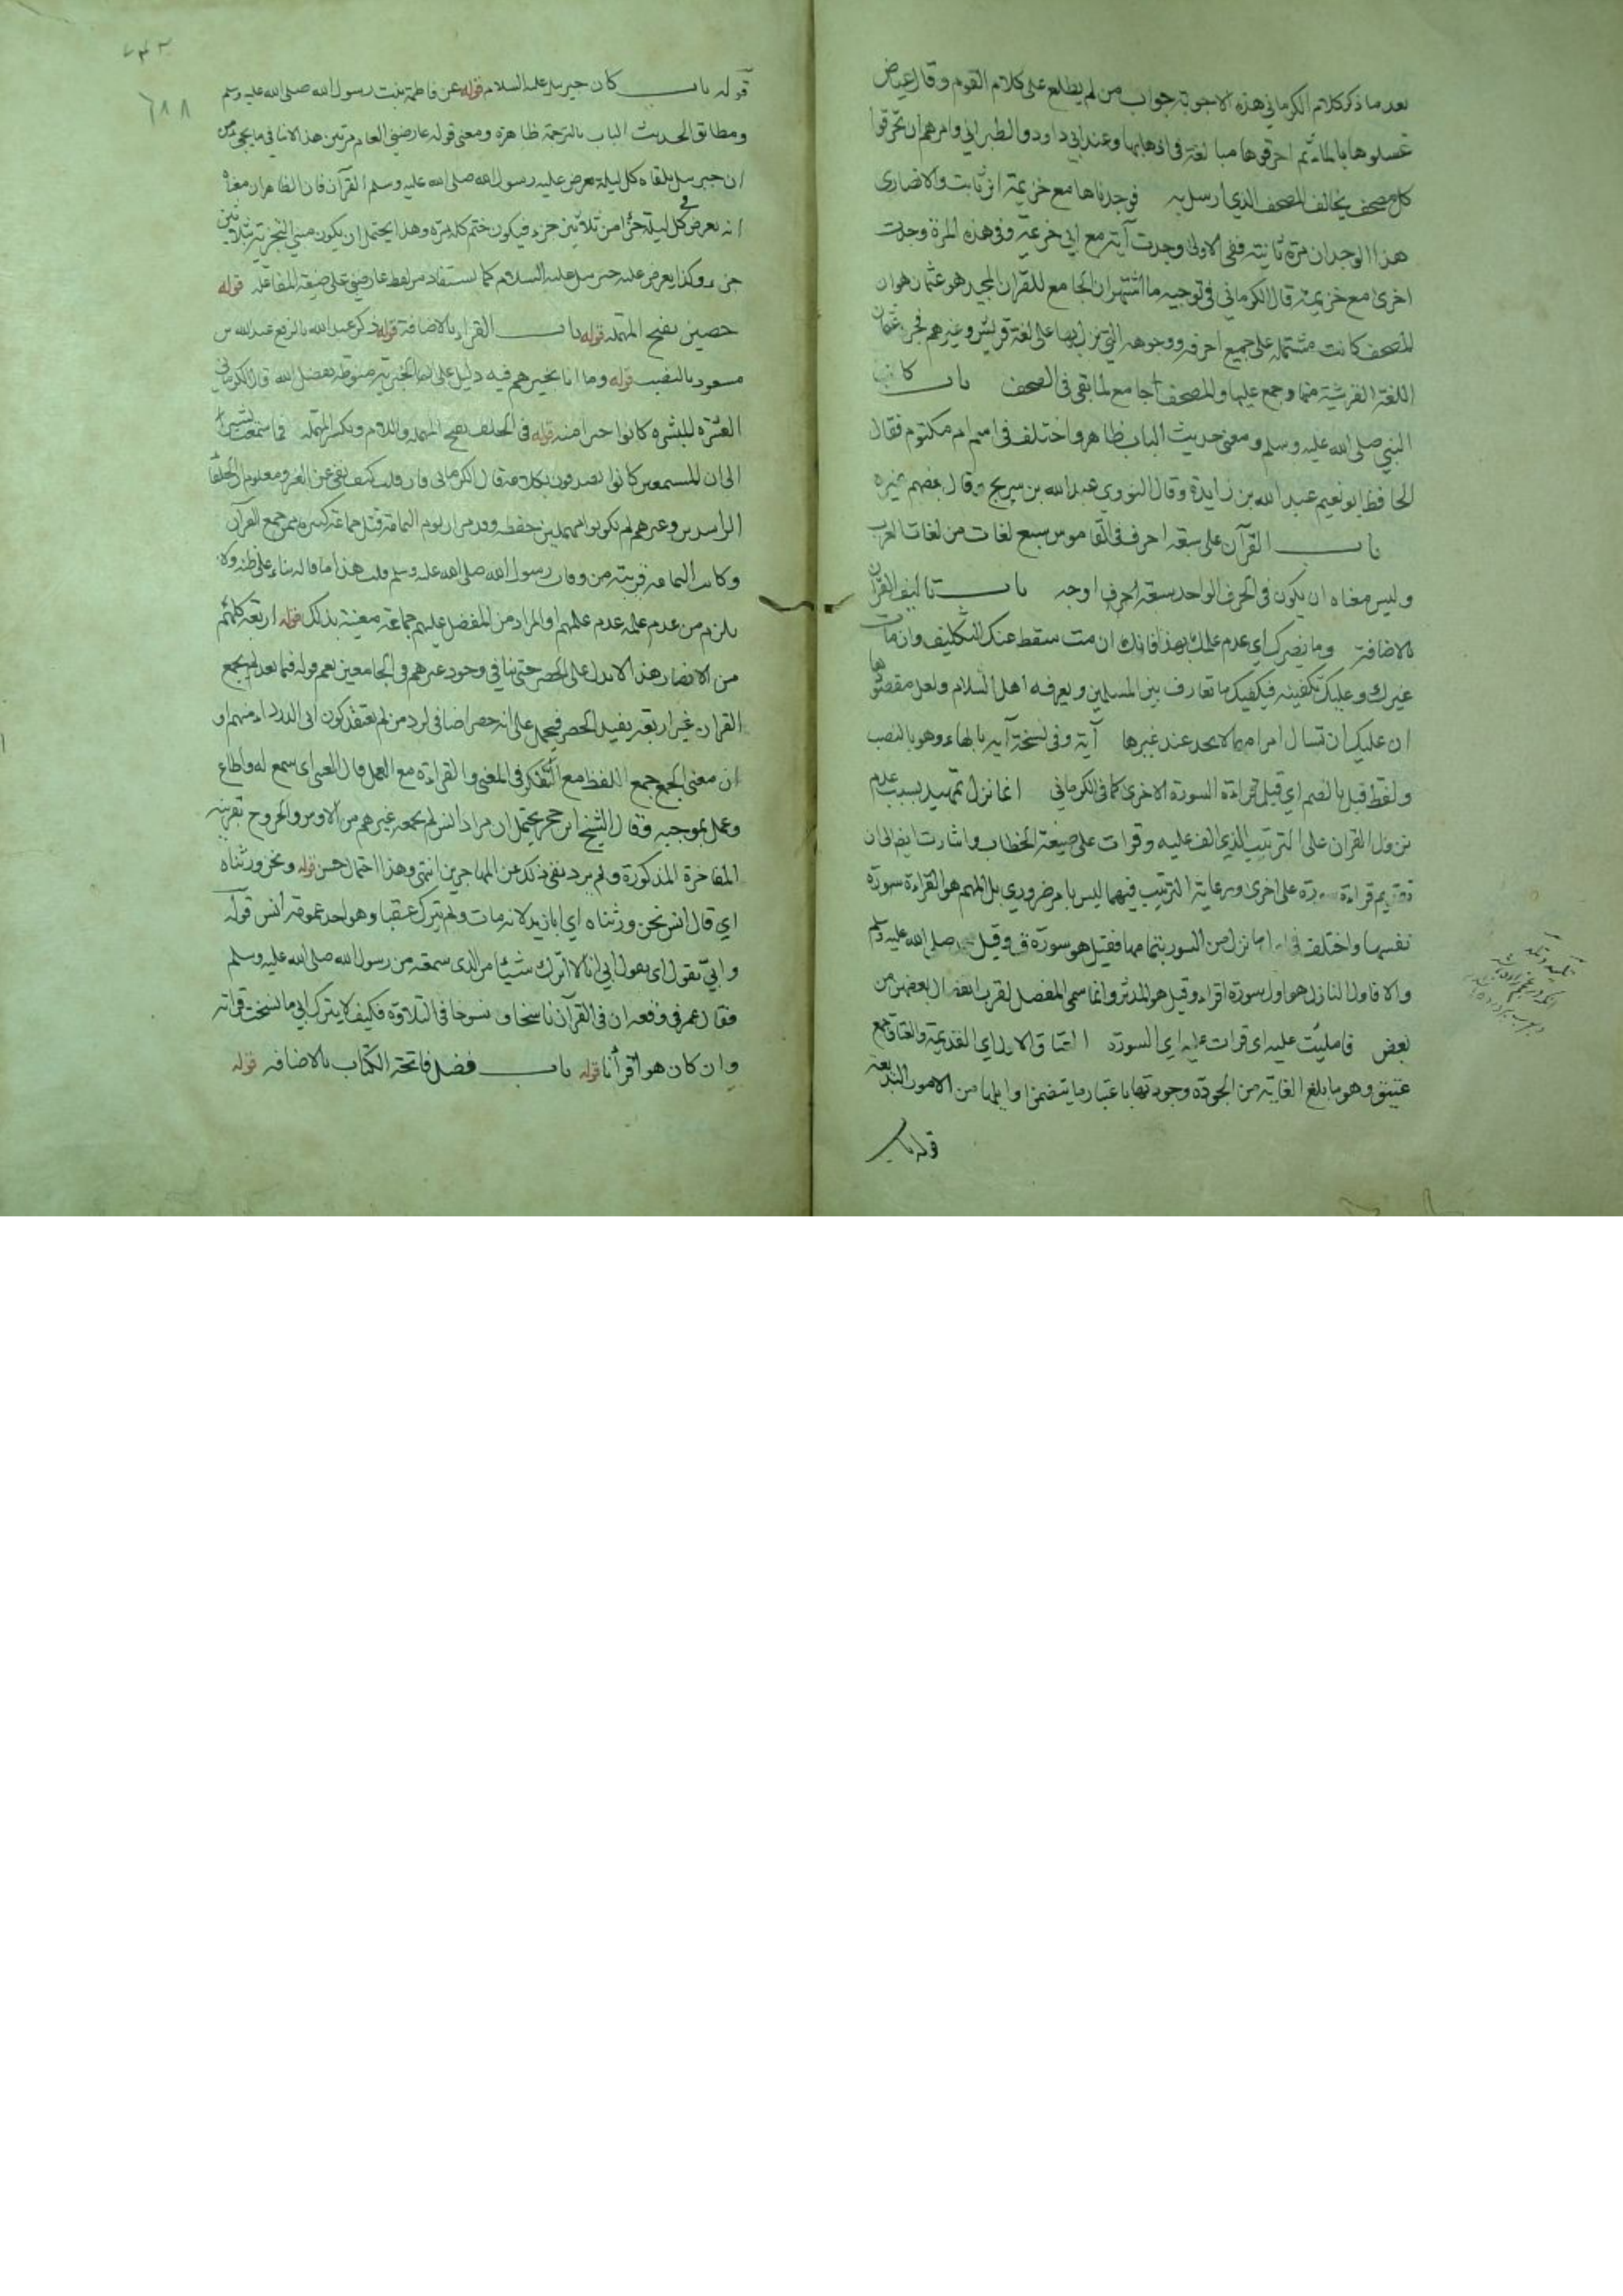 بعد ما ذكر كلام الكرماني هذه الاجوبة جواب من لم يطلع على كلام القوم وقال عياض
غسلوها بالماء ثم احرقوها مبالغة في اذهابها وعند ابي داود والطبراني وامرهم ان يحرقوا
كل مصحف يخالف المصحف الذي ارسل به فوجدناها مع خزيمة ابن ثابت والانصارى
هذا الوجدان مرة ثانية ففى الاولى وجدت آية مع ابي خزيمة وفى هذه المرة وجدت
اخرى مع خزيمة قال الكرماني في توجيه ما اشتهر ان الجامع للقران المجيد هو عثمان هو ان
المصحف كانت مشتملة على جميع احرفه ووجوهه التي نزل بها على لغة قريش وغيرهم فجرد عثمان
اللغة القرشية منها وجمع عليها والمصحف جامع لما بقى فى الصحف باب كاتب
النبي صلى الله عليه وسلم ومعنى حديث الباب ظاهر واختلف في ام مكتوم فقال
الحافظ ابو نعيم عبد الله بن زايدة وقال النووي عبد الله بن سريج وقال بعضهم غيره
باب القرآن على سبعة احرف في القاموس سبع لغات من لغات العرب
وليس معناه ان يكون في الحرف الواحد سبعة اوجه باب تاليف القرآن
بالاضافة وما يضرك اي عدم علمك بهذا فانك ان مت سقط عنك التكليف وان مات
غيرك وعليك تكفينه فيكفيك ما تعارف بين المسلمين ويعرفه اهل السلام ولعل مقصودها
ان عليك ان تسال امرا مهما لا يجد عند غيرها آية وفي نسخة آيه بالهاء وهو بالنصب
ولفظ قبل بالضم اي قبل قراءة السورة الاخرى كما في الكرماني انما نزل تمهيد بسبب عدم
نزول القران على الترتيب الذي الف عليه وقرات على صيغة الخطاب واشارت ايضا الى ان
تقديم قراءة سورة على اخرى ورعاية الترتيب فيهما ليس بامر ضروري بل المهم هو القراءة سورة
نفسها واختلف في ما نزل من السور بتمامها فقيل هو سورة ق وقيل صلى الله عليه وسلم
والا فاول النازل هو اول سورة اقراء وقيل هو المدثر وانما سمى المفصل لقرب انفصال بعضهن من
بعض فامليت عليه اى قرات عليه اي السورة العتاق الاول اي القديمة والعتاق جمع
عتيق وهو ما بلغ الغاية من الجودة وجودتها باعتبار ما يتضمن اوايلها من الامور البديعة
قوله باب
٦٨٨
قوله باب كان جبريل عليه السلام قوله عن فاطمة بنت رسول الله صلى الله عليه وسلم
ومطابق الحديث الباب بالترجمة ظاهرة ومعنى قوله عارضني العام مرتين هذا لا ينافي ما يجي من
ان جبريل يلقاه كل ليلة يعرض عليه رسول الله صلى الله عليه وسلم القرآن فان الظاهر ان معناه
انه يعرض في كل ليلة جزأ من ثلاثين جزء فيكون ختم كله مرة وهذا يحتمل ان يكون مبني التجزية بثلاثين
جزء وكذا يعرض عليه جبريل عليه السلام كما يستفاد من لفظ عارضني على صيغة المفاعلة قوله
حصين بفتح المهملة قوله باب القراء بالاضافة قوله ذكر عبد الله بالرفع عبد الله بن
مسعود بالنصب قوله وما انا بخيرهم فيه دليل على ان الخيرية منوطة بفضل الله قال الكرماني
العشرة المبشرة كانوا خيرا منه قوله في الحلق بفتح المهملة واللام وبكسر المهملة فما سمعت
الى ان المستمعين كانوا يصدقون بكلامه قال الكرماني فان قلت كيف نفى عن الغير ومعلوم ان الخلفا
الراشدين وغيرهم لم يكونوا مهملين حفظه يوم اليمامة قتل جماعة كثيرة ممن جمع القرآن
وكانت اليمامة قريبة من وفات رسول الله صلى الله عليه وسلم قلت هذا ما قاله بناء على ظنه ولا
يلزم من عدم علمه عدم علمهم او المراد من المفضل عليهم جماعة معينة بذلك قوله اربعة كلهم
من الانصار هذا لا يدل على الحصر حتى ينافي وجود غيرهم في الجامعين نعم قوله فيما بعد لم يجمع
القران غير اربعة يفيد الحصر فيحمل على انه حصر اضافي لرد من لم يعتقد كون ابى الدرداء منهم او
ان معنى الجمع جمع اللفظ مع التفكر في المعنى والقراءة مع العمل قال العينى اى سمع له واطاع
وعمل بموجبه وقال الشيخ ابن حجر يحتمل ان مراد انس لم يجمعه غيرهم من الاوس والخزرج بقرينة
المفاخرة المذكورة ولم يرد نفى ذلك عن المهاجرين انتهى وهذا احتمال حسن قوله ونحن ورثناه
اي قال انس نحن ورثناه اي ابا زيد لانه مات ولم يترك عقبا وهو احد عمومة انس قوله
وابي يقول اى يقول ابي انا لا اترك شيئا من الذى سمعته من رسول الله صلى الله عليه وسلم
فقال عمر في دفعه ان في القرآن ناسخا ومنسوخا في التلاوة فكيف لا يترك ابي ما نسخت قراته
وان كان هو اقرأنا قوله باب فضل فاتحة الكتاب بالاضافة قوله